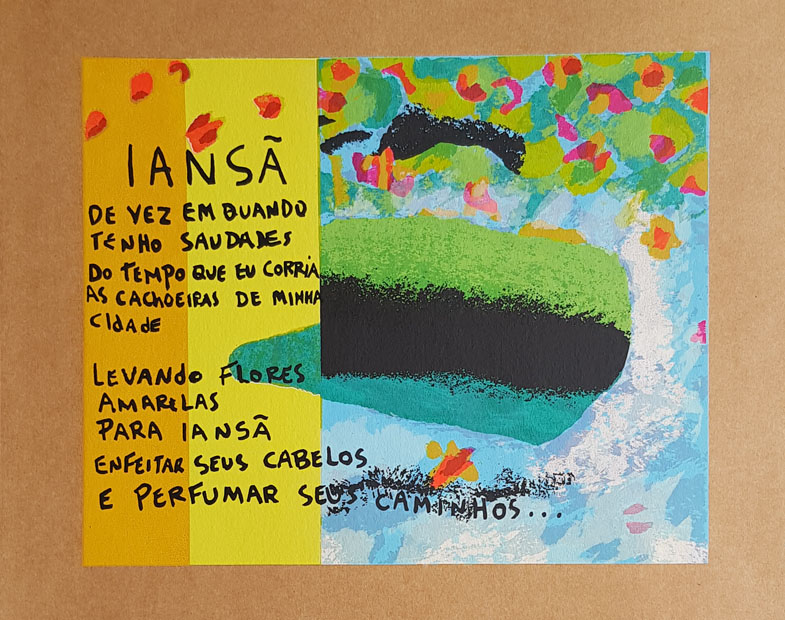 IANSÃ
DE VEZ EM QUANDO
TENHO SAUDADES
DO TEMPO QUE EU CORRIA
AS CACHOEIRAS DE MINHA
CIDADE
LEVANDO FLORES
AMARELAS
PARA IANSÃ
ENFEITAR SEUS CABELOS
E PERFUMAR SEUS CAMINHOS...